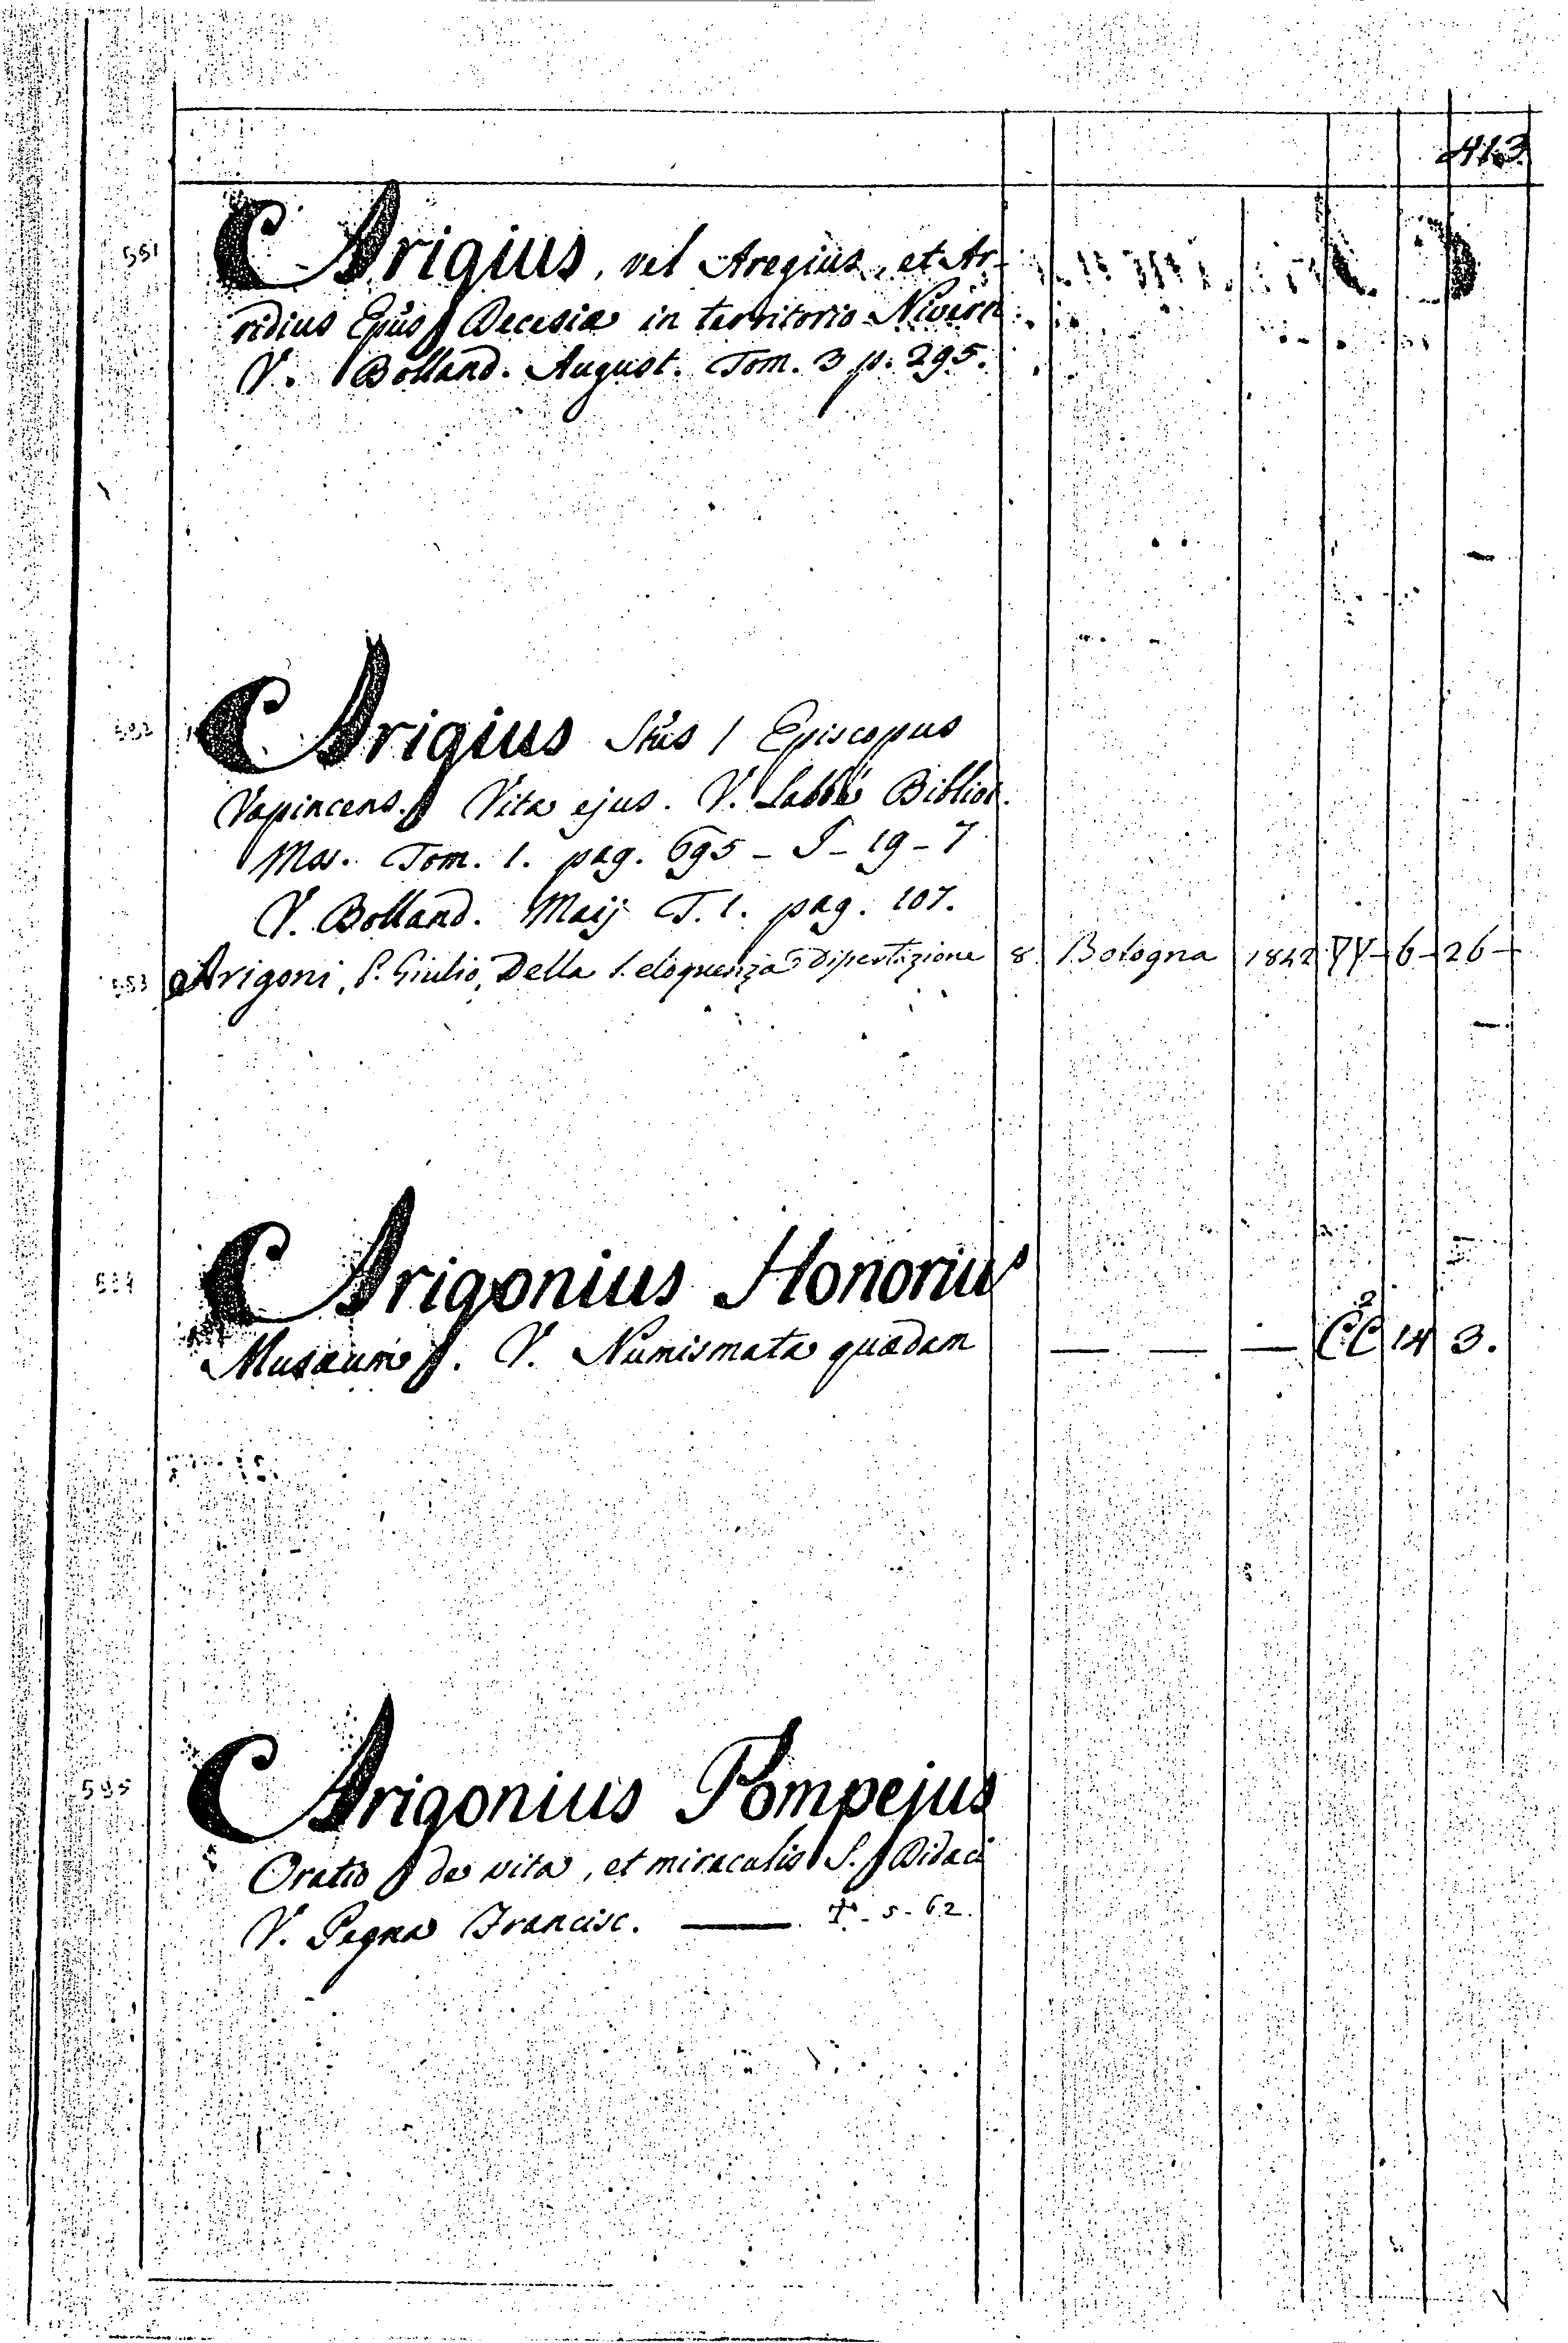 413
551 Arigius, vel Aregius, et Ar-
ridius Epũs / Decesiæ in territorio Nivern
V. Bolland. August. Tom. 3 p. 295.
552 Arigius Stũs / Episcopus
Vapincens. / Vita ejus. V. Labbè Bibliot.
Mss. Tom. 1. pag. 695 - S - 19 - 7
V. Bolland. Maij T. 1. pag. 107.
553 Arigoni, P. Giulio, Della s. eloquenza Dissertazione 8. Bologna 1842 YY - 6 - 26 -
554 Arigonius Honorius
Musæum /. V. Numismata quædam — — — CC 2 14 3.
595 Arigonius Pompejus
Oratio / de vita, et miraculis S. / Didaci
V. Pegna Francisc. — - 5 - 62.